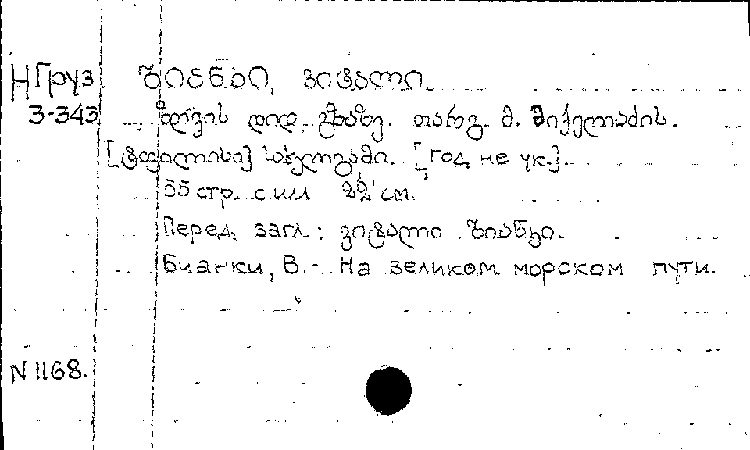 НГруз ბიანკი, ვიტალი.
3-343 ზღვის დიდ გზაზე. თარგ. მ. მიქელაძის.
[ტფილისი] სახელგამი. [год не ук.].
55 стр. с илл 22 см.
Перед. загл: ვიტალი ბიანკი.
Бианки, В. - На великом морском пути.
N 1168.